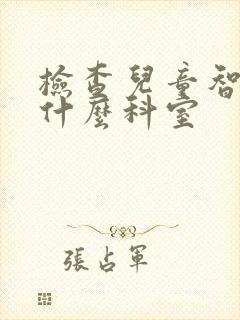 檢查兒童智
什麼科室
張占軍